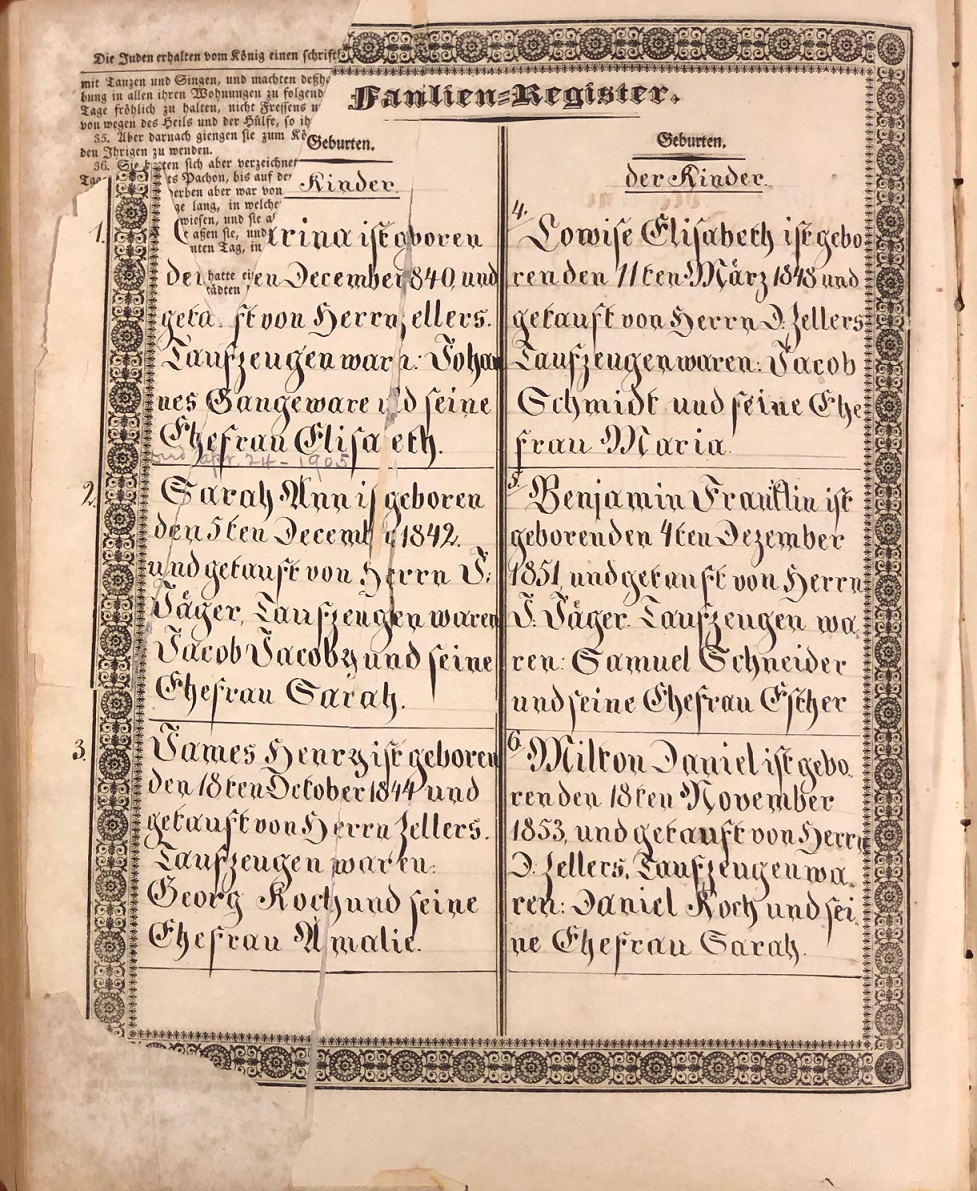 Die Juden erhalten vom König einen schriftl
mit Tanzen und Singen, und machten deßh
bung in allen ihren Wohnungen zu folgend
Tage fröhlich zu halten, nicht Fressens u
von wegen des Heils und der Hülfe, so ih
35. Aber darnach giengen sie zum Kö
den Ihrigen zu wenden.
36. Sie hatten sich aber verzeichnet
ts Pachon, bis auf de
erben aber war von
ge lang, in welche
wiesen, und sie a
aßen sie, und
nten Tag, in
hatte
Familien=Register.
Geburten.
Kinder.
1. rina ist geboren
den December 1840, und
getauft von Herrn Zellers.
Taufzeugen waren: Johan
nes Gangeware und seine
Ehefrau Elisabeth.
Apr. 24 - 1905
2. Sarah Ann ist geboren
den 5ten December 1842.
und getauft von Herrn J.
Jäger, Taufzeugen waren
Jacob Jacoby und seine
Ehefrau Sarah.
3. James Henry ist geboren
den 18ten October 1844 und
getauft von Herrn Zellers.
Taufzeugen waren:
Georg Koch und seine
Ehefrau Amalie.
Geburten.
der Kinder.
4. Lowise Elisabeth ist gebo
ren den 11ten März 1848 und
getauft von Herrn D. Zellers
Taufzeugen waren: Jacob
Schmidt und seine Ehe
frau Maria.
5. Benjamin Franklin ist
geboren den 4ten Dezember
1851, und getauft von Herrn
J. Jäger. Taufzeugen wa
ren: Samuel Schneider
und seine Ehefrau Esther
6. Milton Daniel ist gebo
ren den 18ten November
1853, und getauft von Herrn
D. Zellers, Taufzeugen wa
ren: Daniel Koch und sei
ne Ehefrau Sarah.